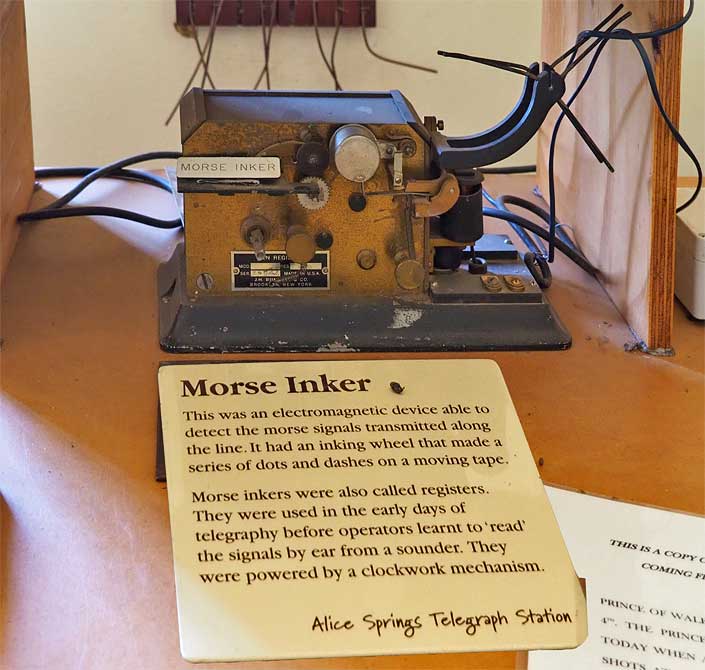 MORSE INKER
MADE IN U.S.A.
BROOKLYN, NEW YORK
Morse Inker
This was an electromagnetic device able to
detect the morse signals transmitted along
the line. It had an inking wheel that made a
series of dots and dashes on a moving tape.
Morse inkers were also called registers.
They were used in the early days of
telegraphy before operators learnt to 'read'
the signals by ear from a sounder. They
were powered by a clockwork mechanism.
Alice Springs Telegraph Station
THIS IS A COPY
COMING
PRINCE OF
4TH. THE PRINCE
TODAY WHEN
SHOTS